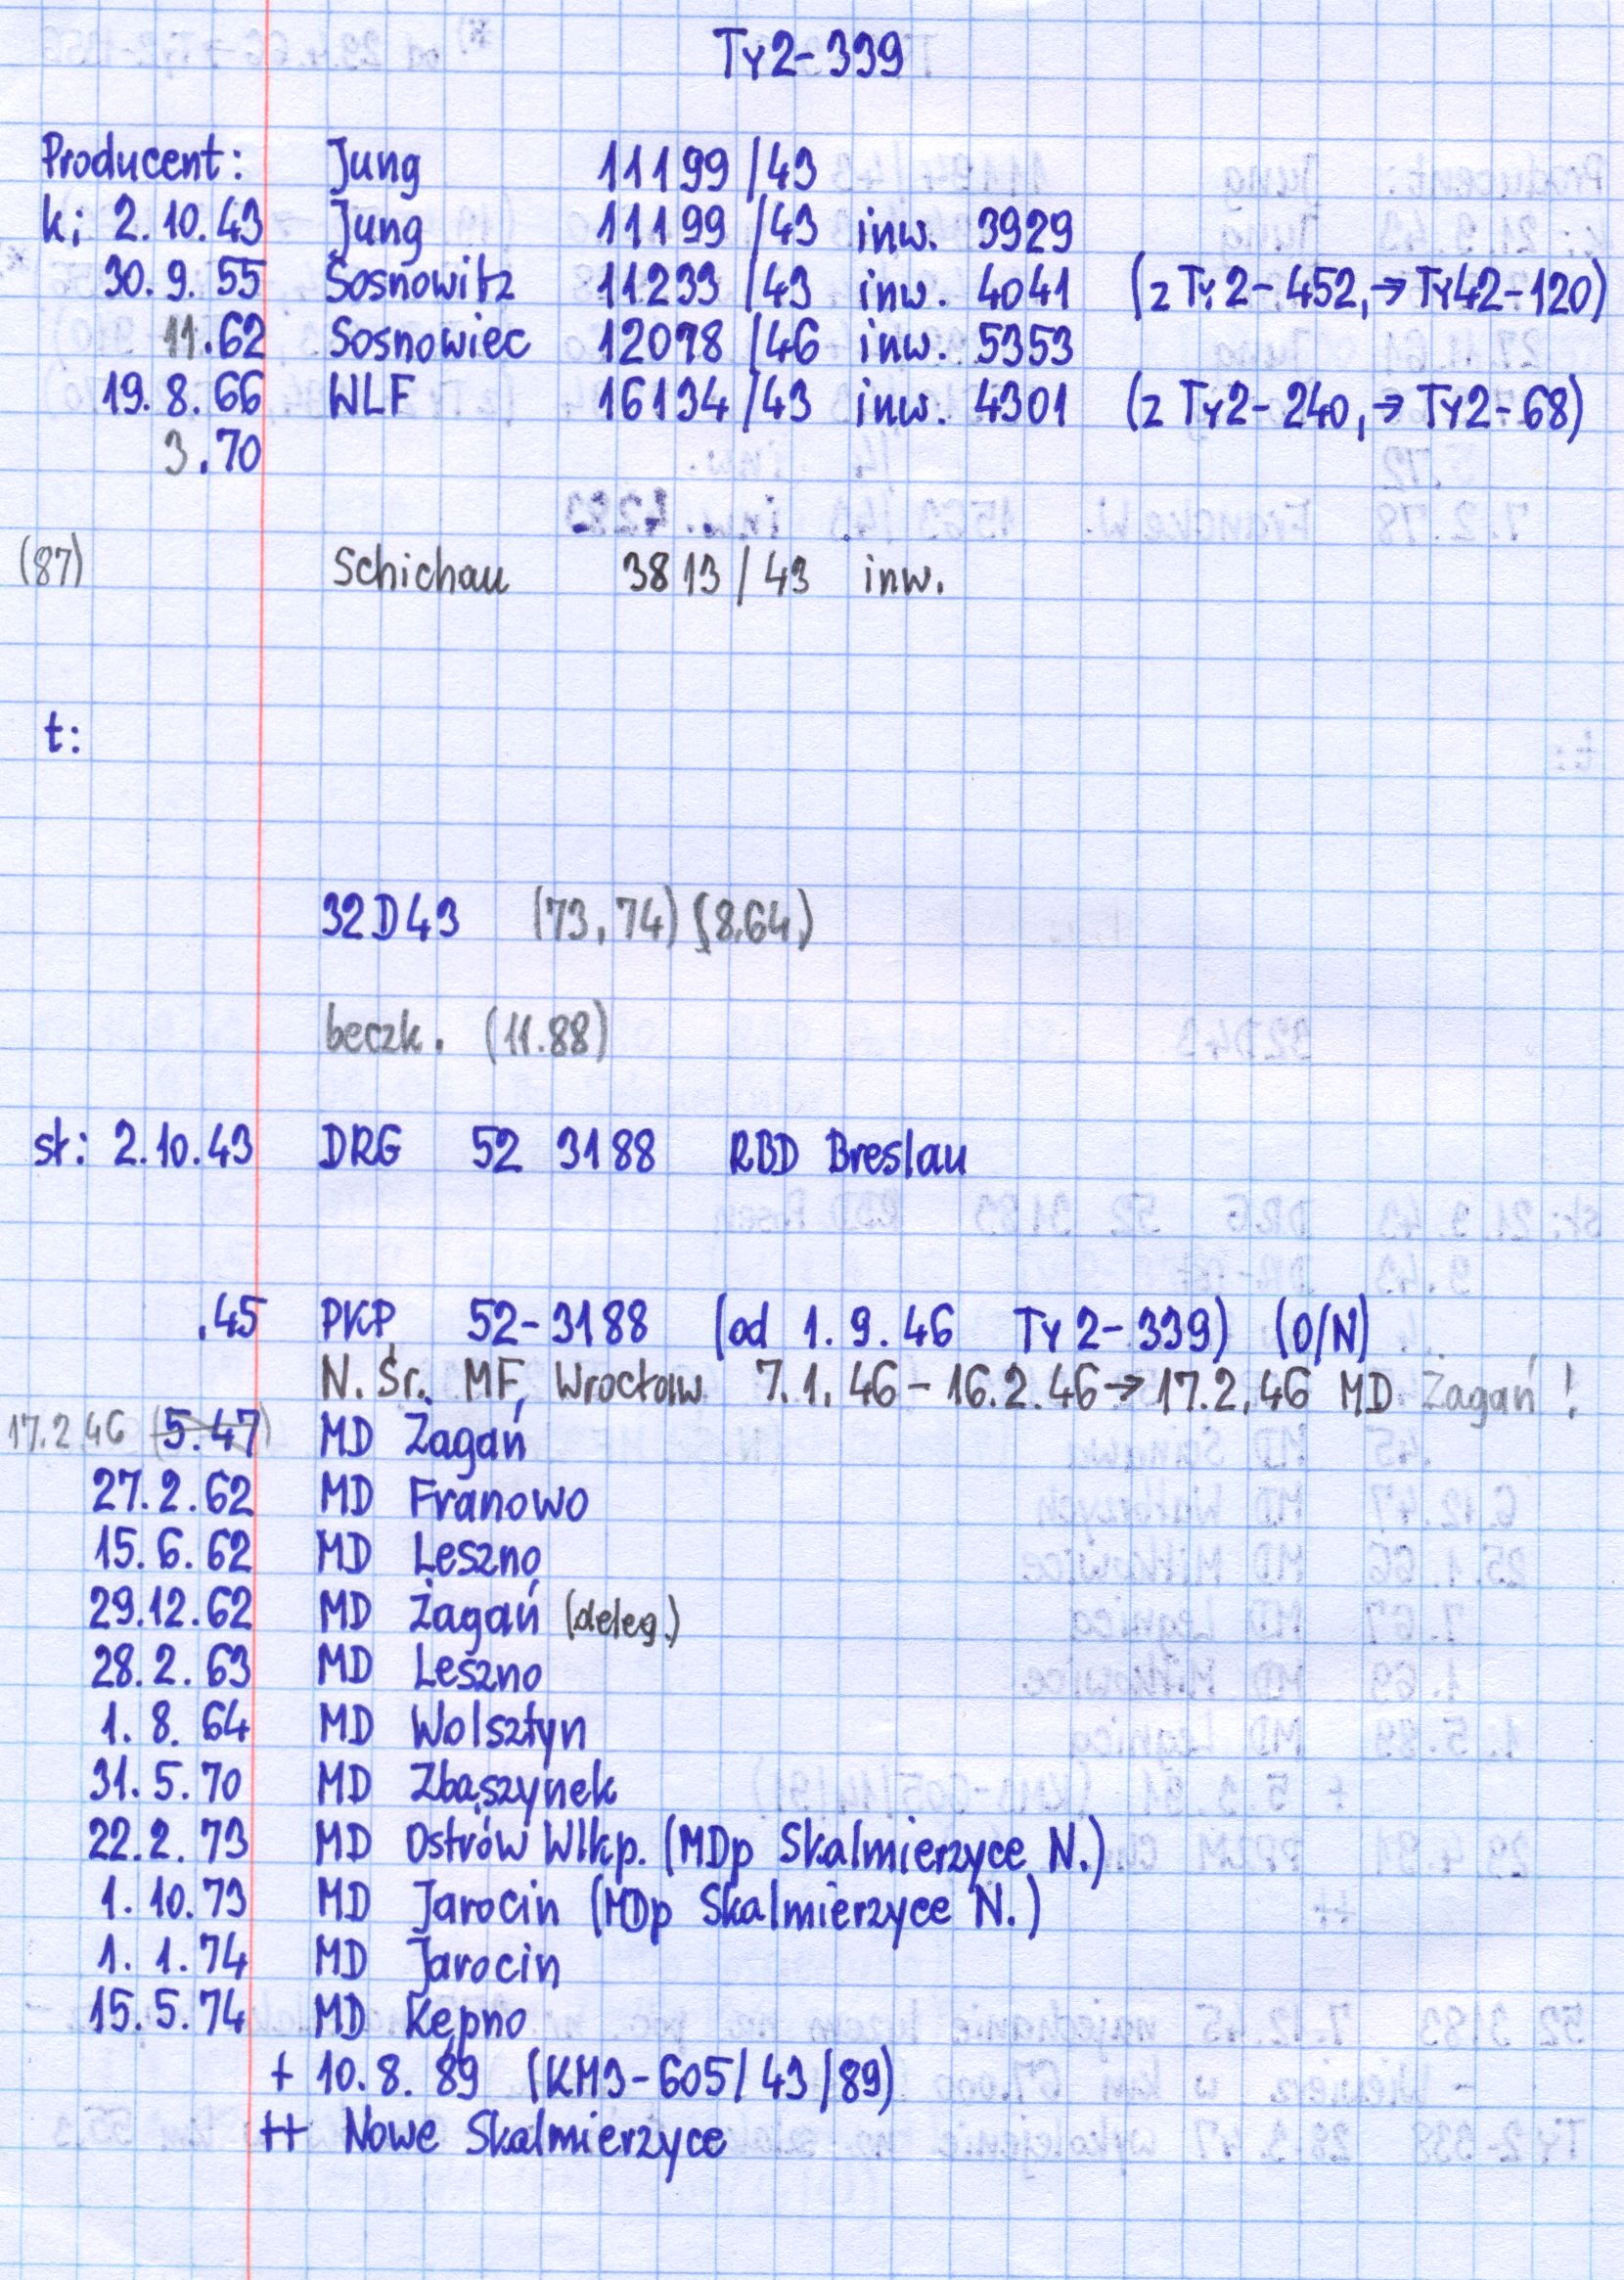 Ty2-339
Producent: Jung 11199/43
k; 2.10.43 Jung 11199/43 inw. 3929
30.9.55 Sosnowitz 11233/43 inw. 4041 (z Ty2-452, → Ty42-120)
11.62 Sosnowiec 12098/46 inw. 5353
19.8.66 WLF 16134/43 inw. 4301 (z Ty2-240, → Ty2-68)
3.70
(87) Schichau 3813/43 inw.
t:
32D43 (73, 74) (8.64)
beczk. (11.88)
sł: 2.10.43 DRG 52 3188 RBD Breslau
.45 PKP 52-3188 (od 1.9.46 Ty2-339) (O/N)
N. Śr. MF, Wrocław 7.1.46 - 16.2.46 → 17.2.46 MD Żagań!
17.2.46 (5.47) MD Żagań
27.2.62 MD Franowo
15.6.62 MD Leszno
29.12.62 MD Żagań (deleg.)
28.2.63 MD Leszno
1.8.64 MD Wolsztyn
31.5.70 MD Zbąszynek
22.2.73 MD Ostrów Wlkp. (MDp Skalmierzyce N.)
1.10.73 MD Jarocin (MDp Skalmierzyce N.)
1.1.74 MD Jarocin
15.5.74 MD Kępno
+ 10.8.89 (KM3-605/43/89)
++ Nowe Skalmierzyce